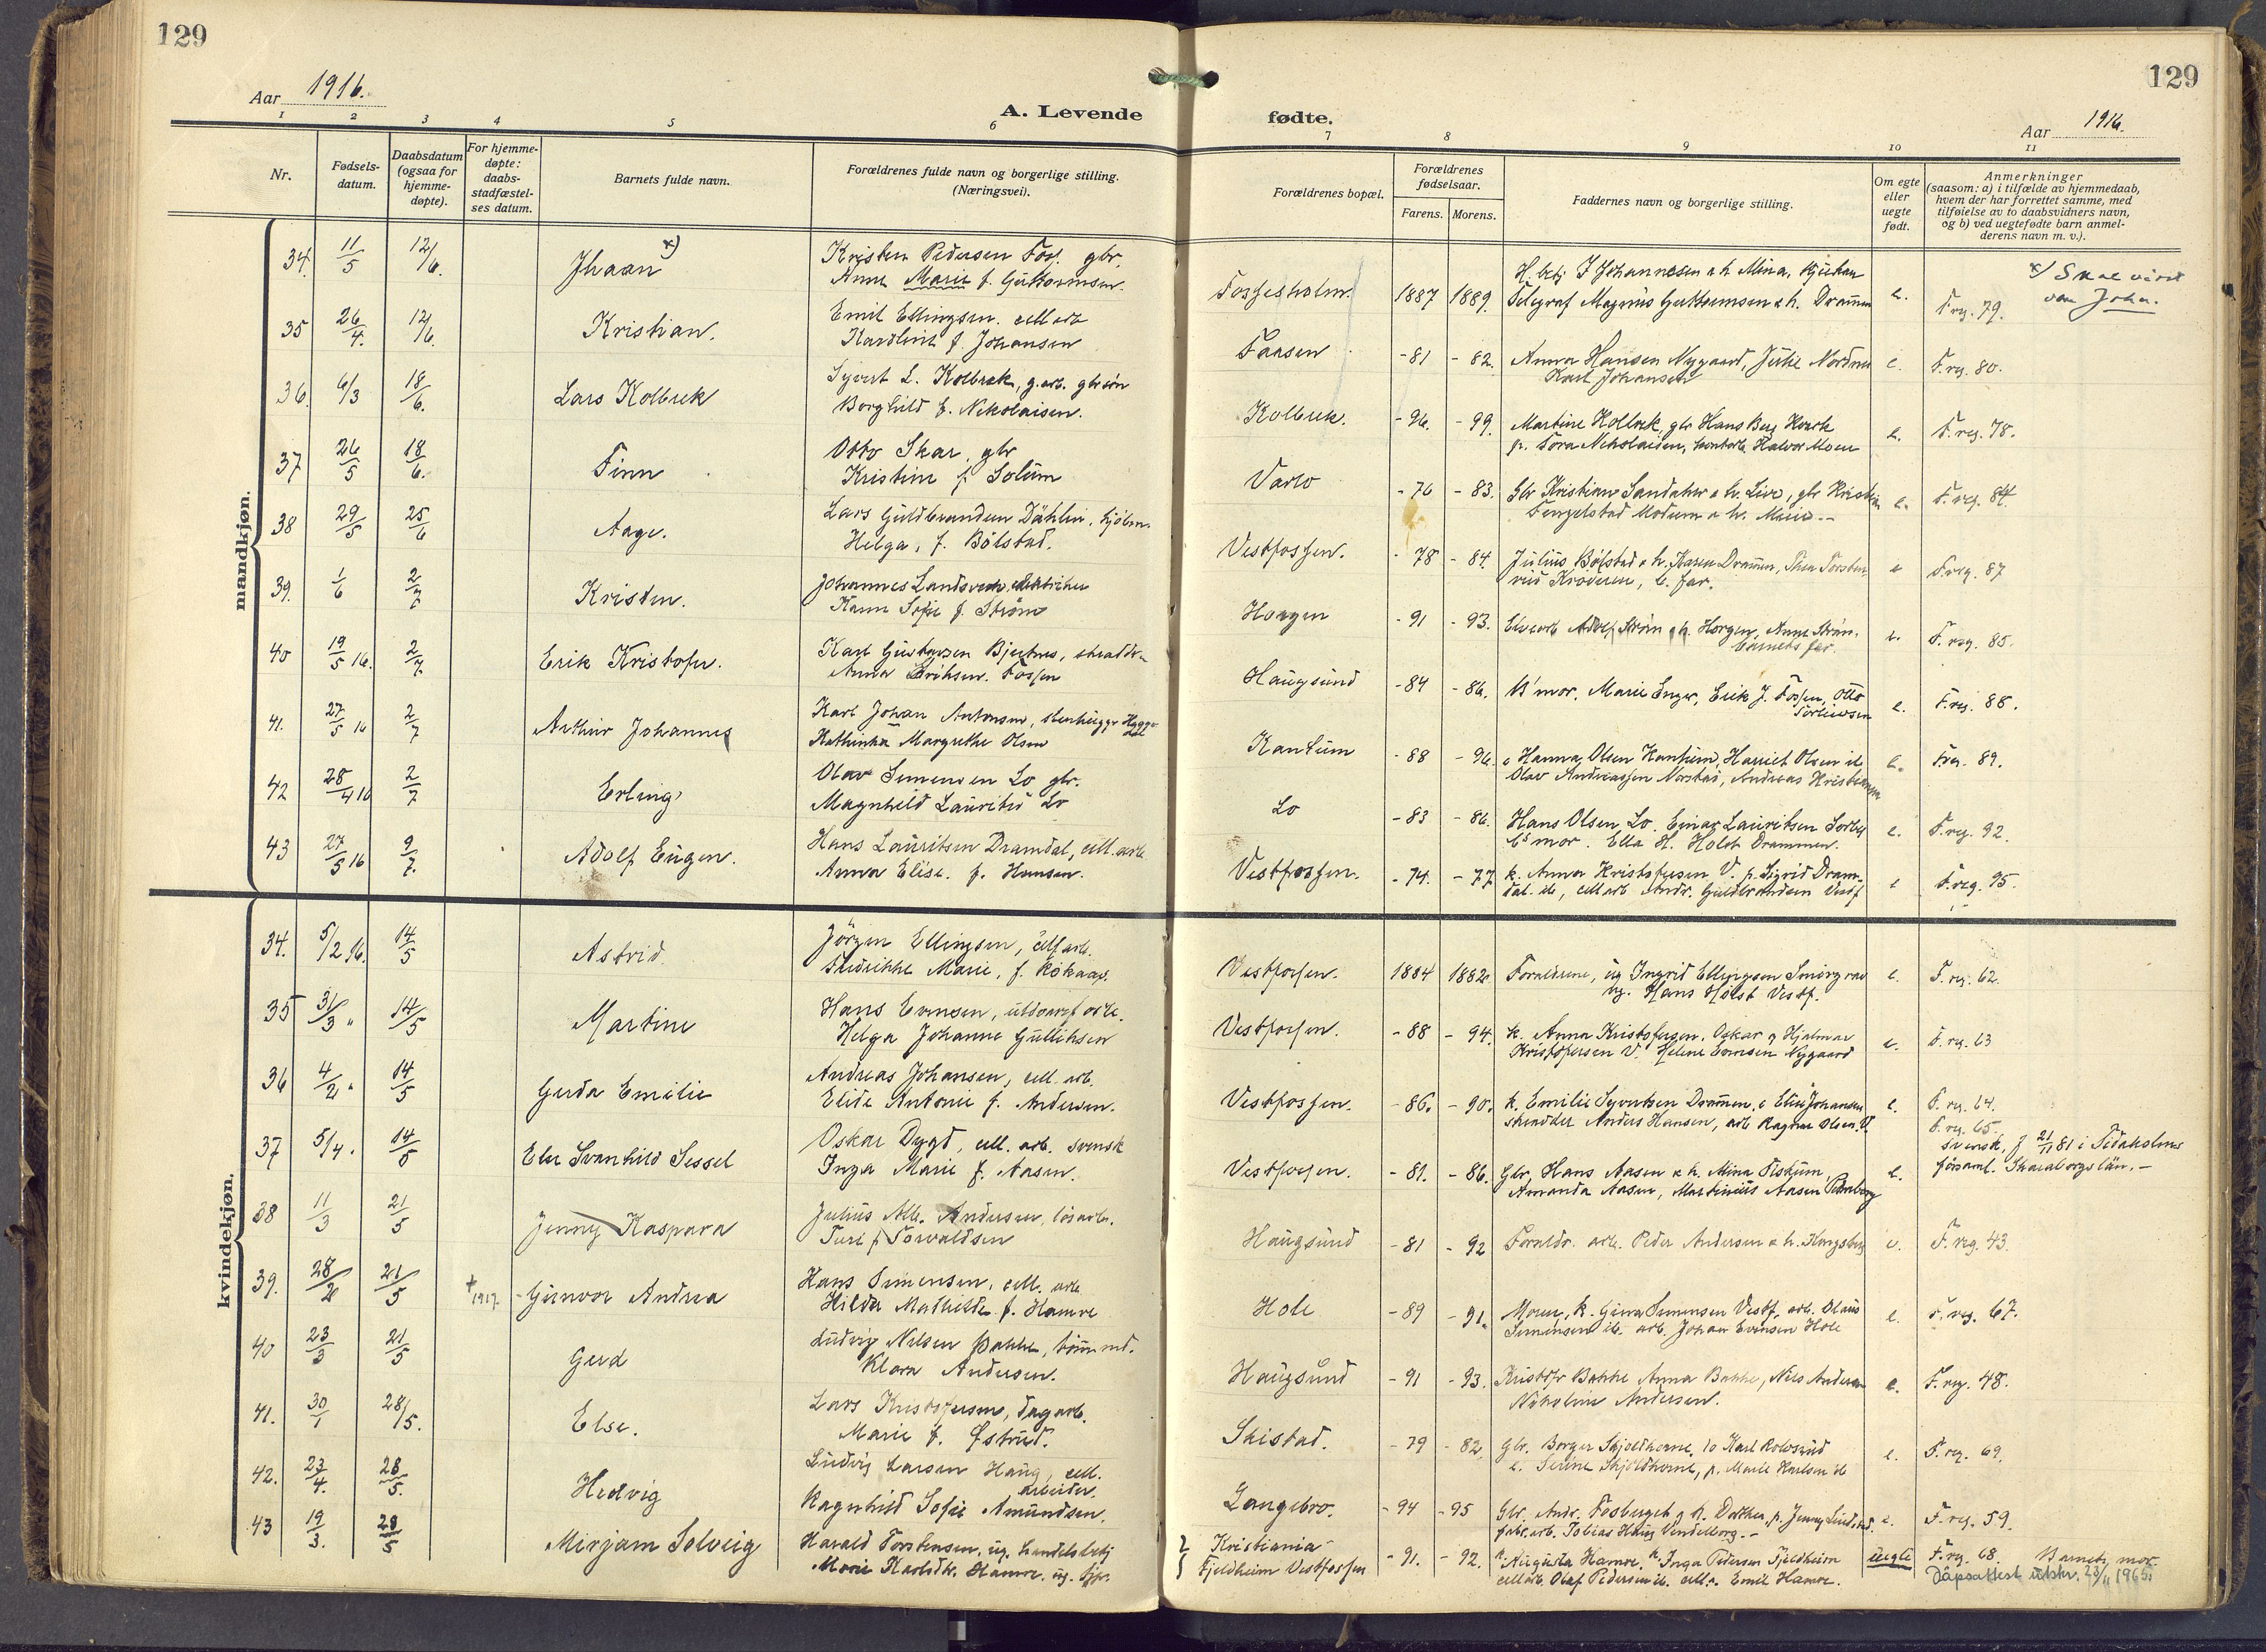 129
129
Aar 1916.
Aar 1916.
A. Levende fødte.
1 2 3 4 5 6 7 8 9 10 11
Nr.
Fødsels-
datum.
Daabsdatum
(ogsaa for
hjemme-
døpte).
For hjemme-
døpte:
daabs-
stadfæstel-
ses datum.
Barnets fulde navn.
Forældrenes fulde navn og borgerlige stilling.
(Næringsvei).
Forældrenes bopæl.
Forældrenes
fødselsaar.
Farens. Morens.
Faddernes navn og borgerlige stilling.
Om egte
eller
uegte
født.
Anmerkninger
(saasom: a) i tilfælde av hjemmedaab,
hvem der har forrettet samme, med
tilføielse av to daabsvidners navn,
og b) ved uegtefødte barn anmel-
derens navn m. v.).
mandkjøn.
34. 11/5 12/6. Jhaan x) Kristen Pedersen Fos. gbr. Fossesholm. 1887 1889. H. betj J Johannesen & h. Mina, e. F. reg. 79. x/ Skal være
Anne Marie f. Guttormsen. Telegraf Magnus Guttormsen & h. Drammen John.
35 26/4. 12/6. Kristian. Emil Ellingsen. cell arb Faasen -81 -82. Anna Hansen Nygaard, e. F. reg. 80.
Karoline f. Johansen Karl Johansen
36. 6/3 18/6. Lars Kolbrek Syvert L. Kolbrek, g. arb. gbr søn Kolbrek. -96. -99. Martine Kolbrek, gbr Hans Berg e. F. reg. 78.
Borghild E. Nikolaisen. p. Tora Nikolaisen, Halvor Moen
37 26/5 18/6. Finn Otto Skar, gbr Varlo -76 -83. Gbr Kristian Sandaker & h. Live, gbr Kristian e. F. reg. 84.
Kristine f Solum Tengelstad Modum & h. Marie.-
38 29/5 25/6 Aage. Lars Guldbrandsen Dahlin, kjøbm. Vestfossen. -78 -84. Julius Bølstad & h. Karen Drammen, e F. reg. 87
Helga, f. Bølstad. Krødsren, b. far.
39. 1/6 2/7 Kristen. Johannes Landsverk, Horgen -91 -93. Adolf Strøm & h. Horgen, Anne Strøm. e. F. reg. 85.
Karen Sofie f. Strøm barnets far.
40 19/5 16. 2/7 Erik Kristofer. Karl Gustavsen Bjertnes, skrædder Haugsund -84 -86. B'mor. Marie Enger, Erik J. Fossen, Otto e. F. reg. 88.
Anna Eriksen. Fossen Torkildsen
41. 27/5 16 2/7 Arthur Johannes Karl Johan Antonsen, stenhugger Kantum -88 -96. Hanna Olsen Kantum, Harriet Olsen ib e. F. reg. 89.
Kathinka Margrethe Olsen Olav Andreassen Norstad, Andreas Kristiansen
42 28/4 16 2/7 Erling, Olav Simensen Lo gbr. Lo -83 -86. Hans Olsen Lo. Einar Lauritsen Sorby e. F. reg. 92.
Magnhild Lauritsd Lo b's mor. Ella H. Holst Drammen.
43 27/5 16 9/7. Adolf Eugen. Hans Lauritsen Dramdal, cell. arb. Vestfossen. -74. -77 k. Anna Kristofersen V. p. Sigrid Dram- e F. reg. 95.
Anna Elise. f. Hansen. dal ib, cell arb Andr. Guldbrandsen Vestf
kvindekjøn.
34. 5/2 16. 14/5 Astrid. Jörgen Ellingsen, cell arb. Vestfossen. 1884 1882. Forældrene, ug Ingrid Ellingsen e. F. reg. 62.
Fredrikke Marie, f. ug. Hans Holst Vestf.
35 31/3 " 14/5 Martine Hans Evensen, arb. Vestfossen. -88 -94. k. Anna Kristofersen, Oskar og Hjalmar e. F. reg. 63
Helga Johanne Gulliksen Kristofersen V. Helene Evensen Nygaard
36 4/2 " 14/5 Gerda Emilie Andreas Johansen, cell. arb. Vestfossen. -86. -90. k. Emilie Syvertsen Drammen, e Elise Johansen e. F. reg. 64.
Elide Antonie f. Andersen. skrædder Anders Hansen, arb Ragnar Olsen. V.
37 5/4. 14/5 Else Svanhild Sessel Oskar Dygd, cell. arb. svensk Vestfossen. -81. -86. Gbr, Hans Aasen & h. Mina Fiskum, e. F. reg. 65.
Inga Marie f. Aasen. Amanda Aasen, Martinius Aasen svensk, f 21/11 81 i Tidaholms
församl. Skaraborgs län.-
38 11/3 21/5 Jenny Kaspara Julius Alb. Andersen, løsarb. Haugsund -81 -92 Forældr. arb. Peder Andersen & h. Kongsberg e. F. reg. 43.
Turi f Torvaldsen
39. 28/2 21/5 † 1917. Gunvor Andrea Hans Simensen, cell. arb Hole -89 -91. Moren, k. Gina Simensen Vestf, arb. Olaus e. F. reg. 67.
Hilda Mathilde f. Hamre Simensen ib. arb. Johan Evensen Hole
40 23/3 21/5 Gerd Ludvig Nilsen Bakke, tømmerm. Haugsund -91 -93. Kristofr Bakke Anna Bakke, Nils Andersen e. F. reg. 48.
Klara Andersen. Nikoline Andersen.
41. 30/1 28/5. Else. Lars Kristofersen, dagarb. Skistad. -79 -82. Gbr. Borger Skjoldhorne, Karl Rolosund e. F. reg. 69.
Marie f. Østrud. e. Serine Skjoldhorne, p. Marie Karlsen ib
42. 23/4. 28/5. Hedvig Ludvig Larsen Haug, cell. arbeider. Langebro. -94 -95 Gbr. Andr. Fosberget & h. Dorthea, p. Jenny e. F. reg. 59.
Ragnhild Sofie Amundsen. fabr. arb. Tobias Haug
43 19/3. 28/5 Mirjam Solveig Harald Torstensen, ug. handelsbetj Kristiania -91. -92. k. Augusta Hamre, k. Inga Pedersen Fjeldheim uegte F. reg. 68. Barnets mor.
Marie Karlsdtr. Hamre. ug. Fjeldheim Vestfossen cell arb. Olaf Pedersen ib. cell. a. Emil Hamre. Dåpsattest utskr. 23/11 1965.